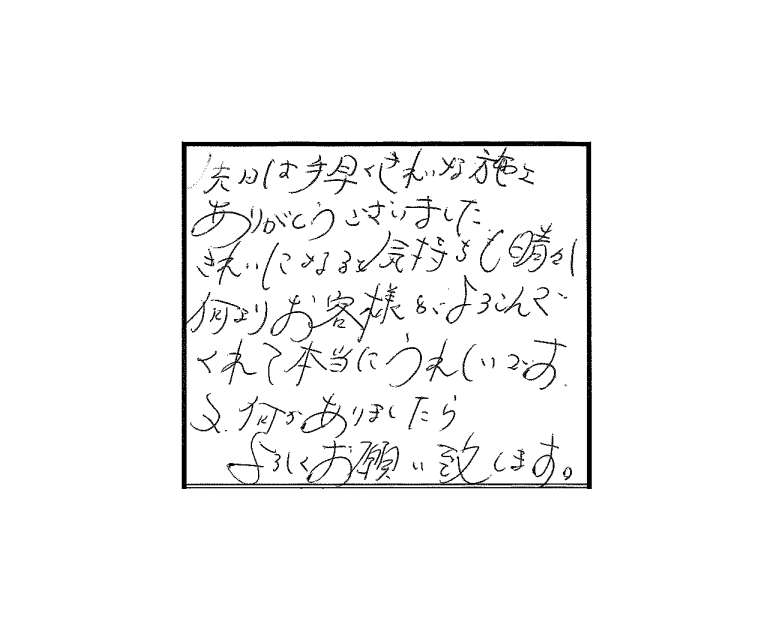 先日は手早くきれいな施工
ありがとうございました.
きれいになると気持ちも晴々し
何よりお客様がよろこんで
くれて本当にうれしいです.
又、何かありましたら
よろしくお願い致します。